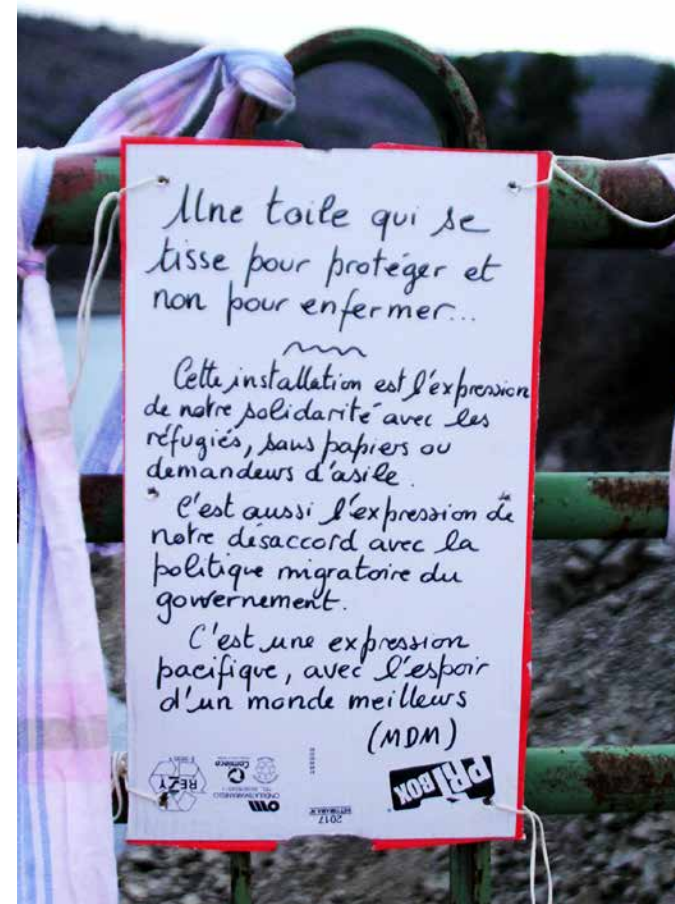 Une toile qui se
tisse pour protéger et
non pour enfermer...
Cette installation est l'expression
de notre solidarité avec les
réfugiés, sans papiers ou
demandeurs d'asile.
C'est aussi l'expression de
notre désaccord avec la
politique migratoire du
gouvernement.
C'est une expression
pacifique, avec l'espoir
d'un monde meilleurs
(MDM)
RESY
Comieco
2017
PRI
BOX